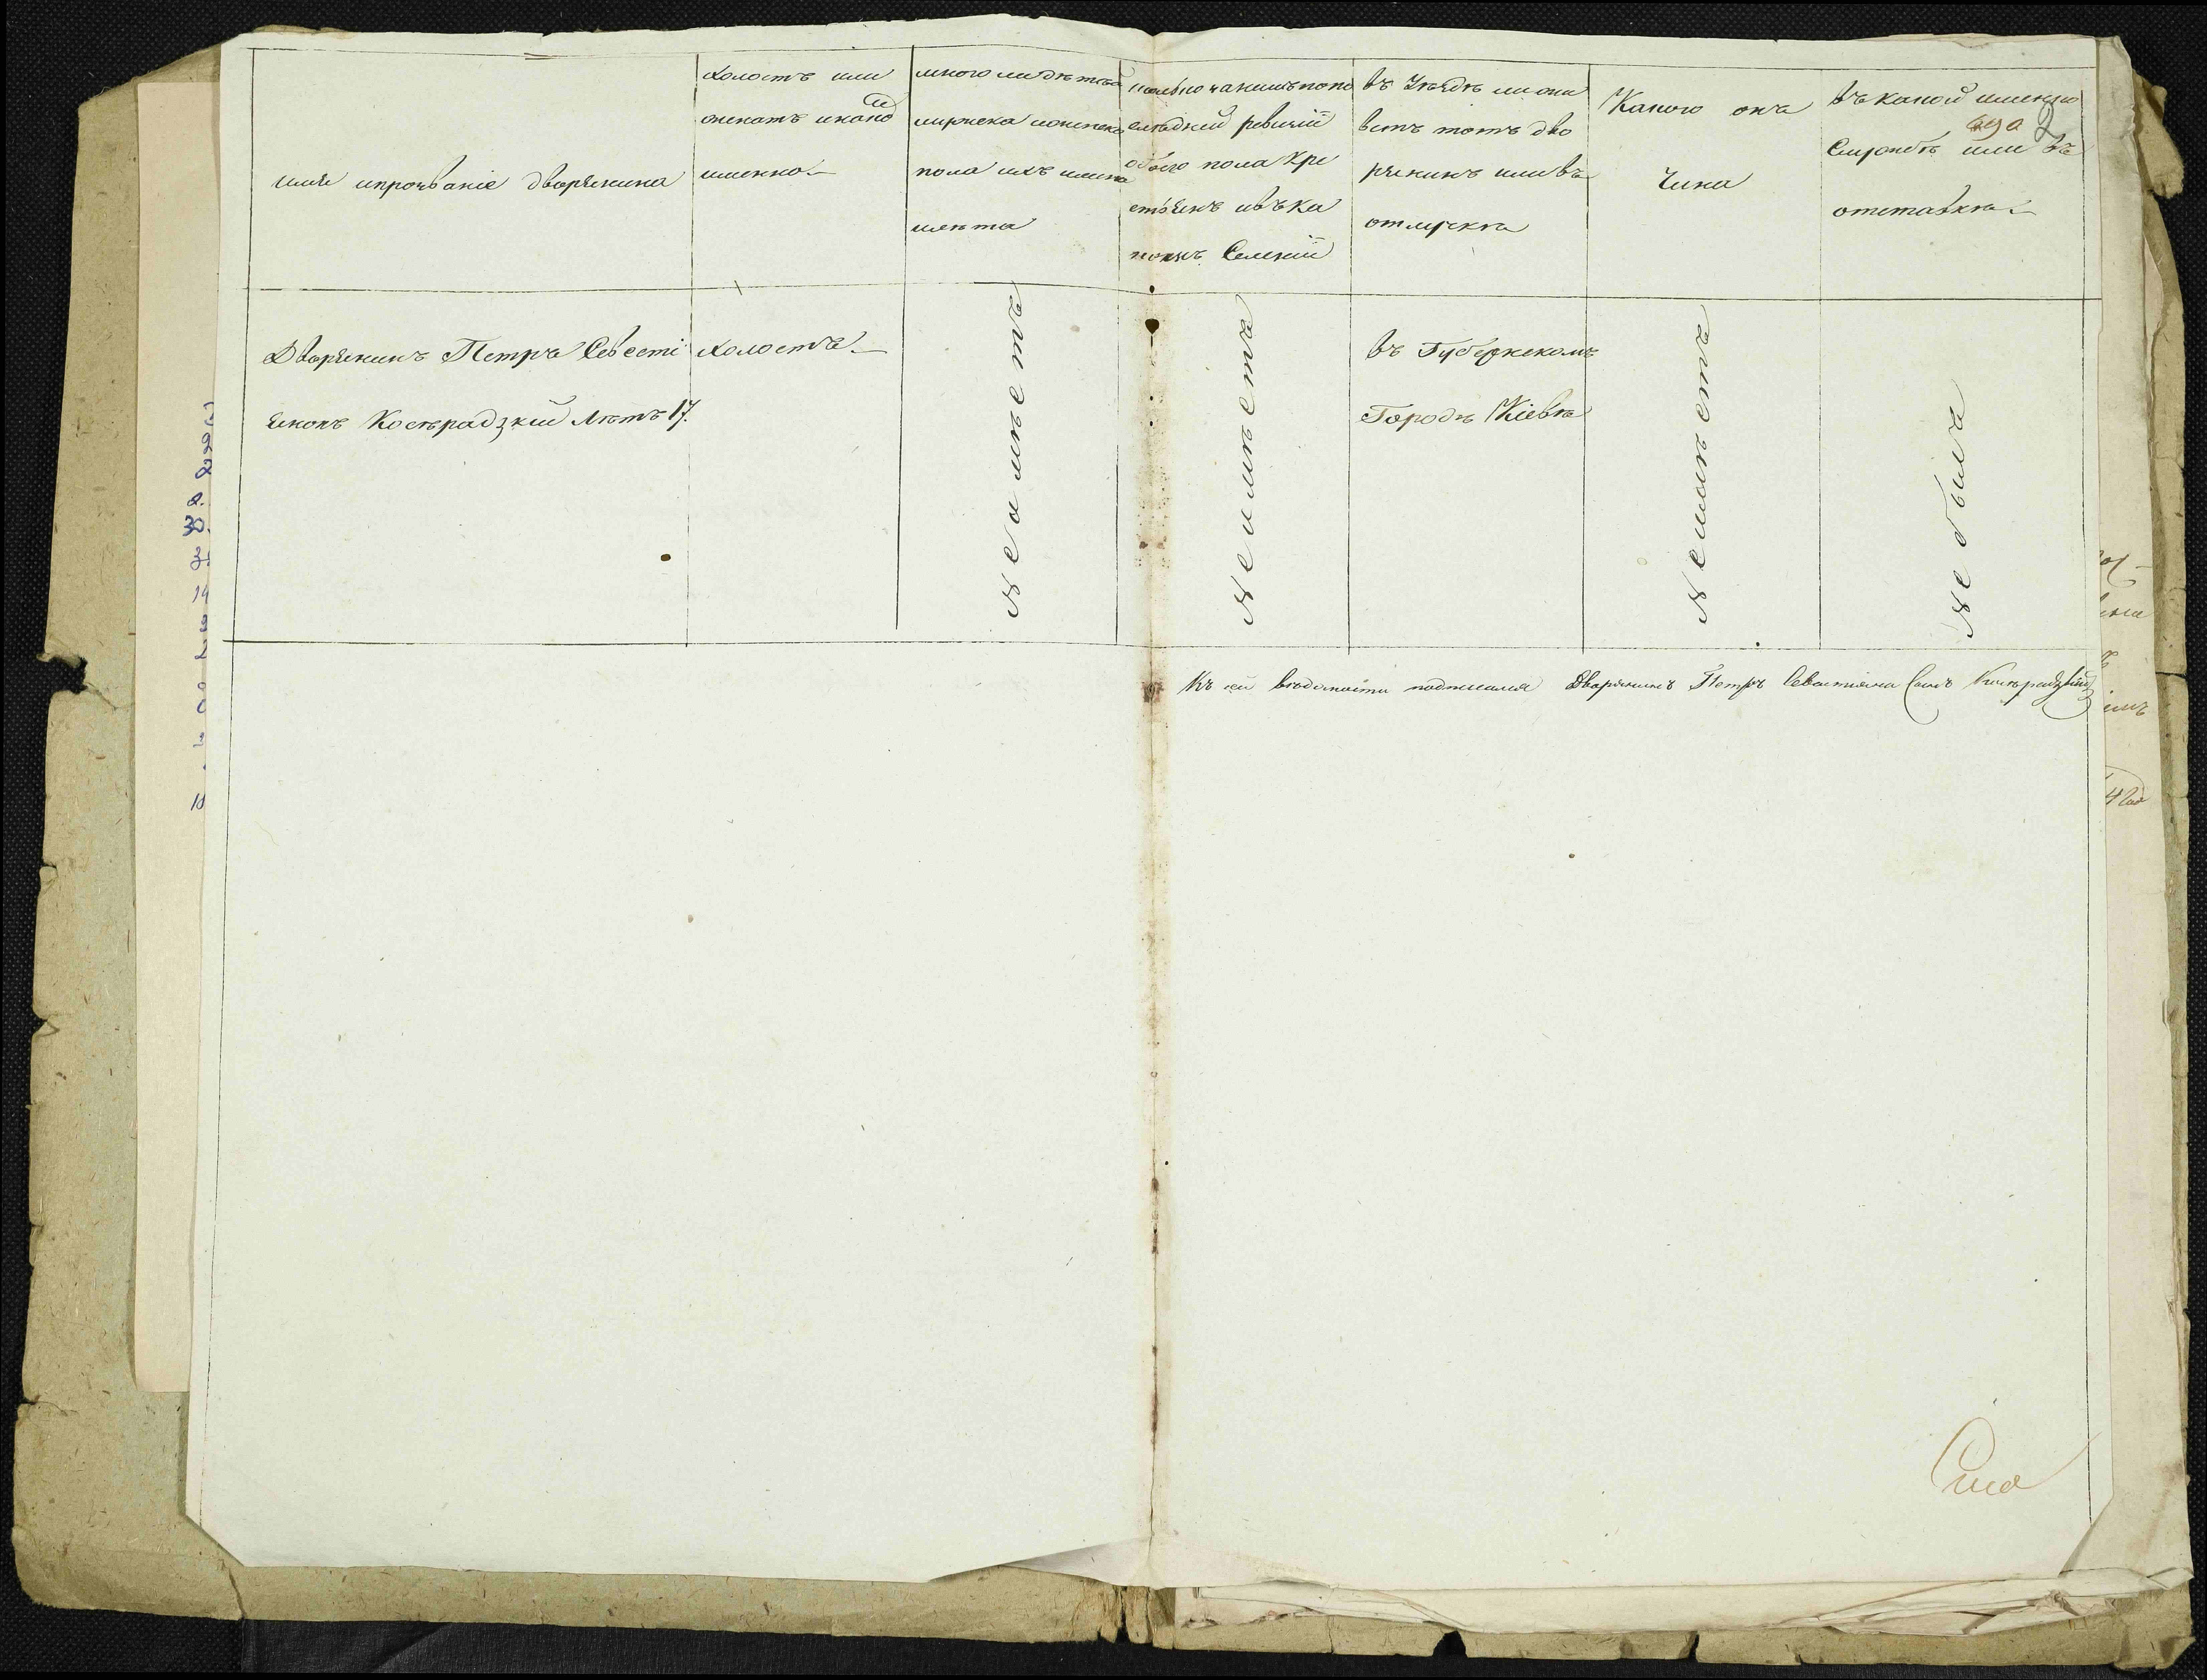 имя ипрозваніе дворянина
холостъ или
женатъ икано
именно
много ли дѣтей
мужеска иженска
пола ихъ имена
илѣта
сколько занимъ попо
слѣдней ревизіи
обоего пола кре
стьянъ ивъка
комъ Селеніи
въ Уѣздѣ ли жи
ветъ тотъ дво
рянинъ иливъ
отлучкѣ
Какого онъ
Чина
въ какой именно
Службѣ или въ
отставкѣ
2
Дворянинъ Петръ Севесті
яновъ Костърадзкій Лѣтъ 17.
холостъ
Неимѣетъ
Неимѣетъ
въ Губернскомъ
Городѣ Кіевѣ
Неимѣетъ
Не былъ
Къ сей вѣдомости подписался Дворянинъ Петръ Севастіяна Сынъ